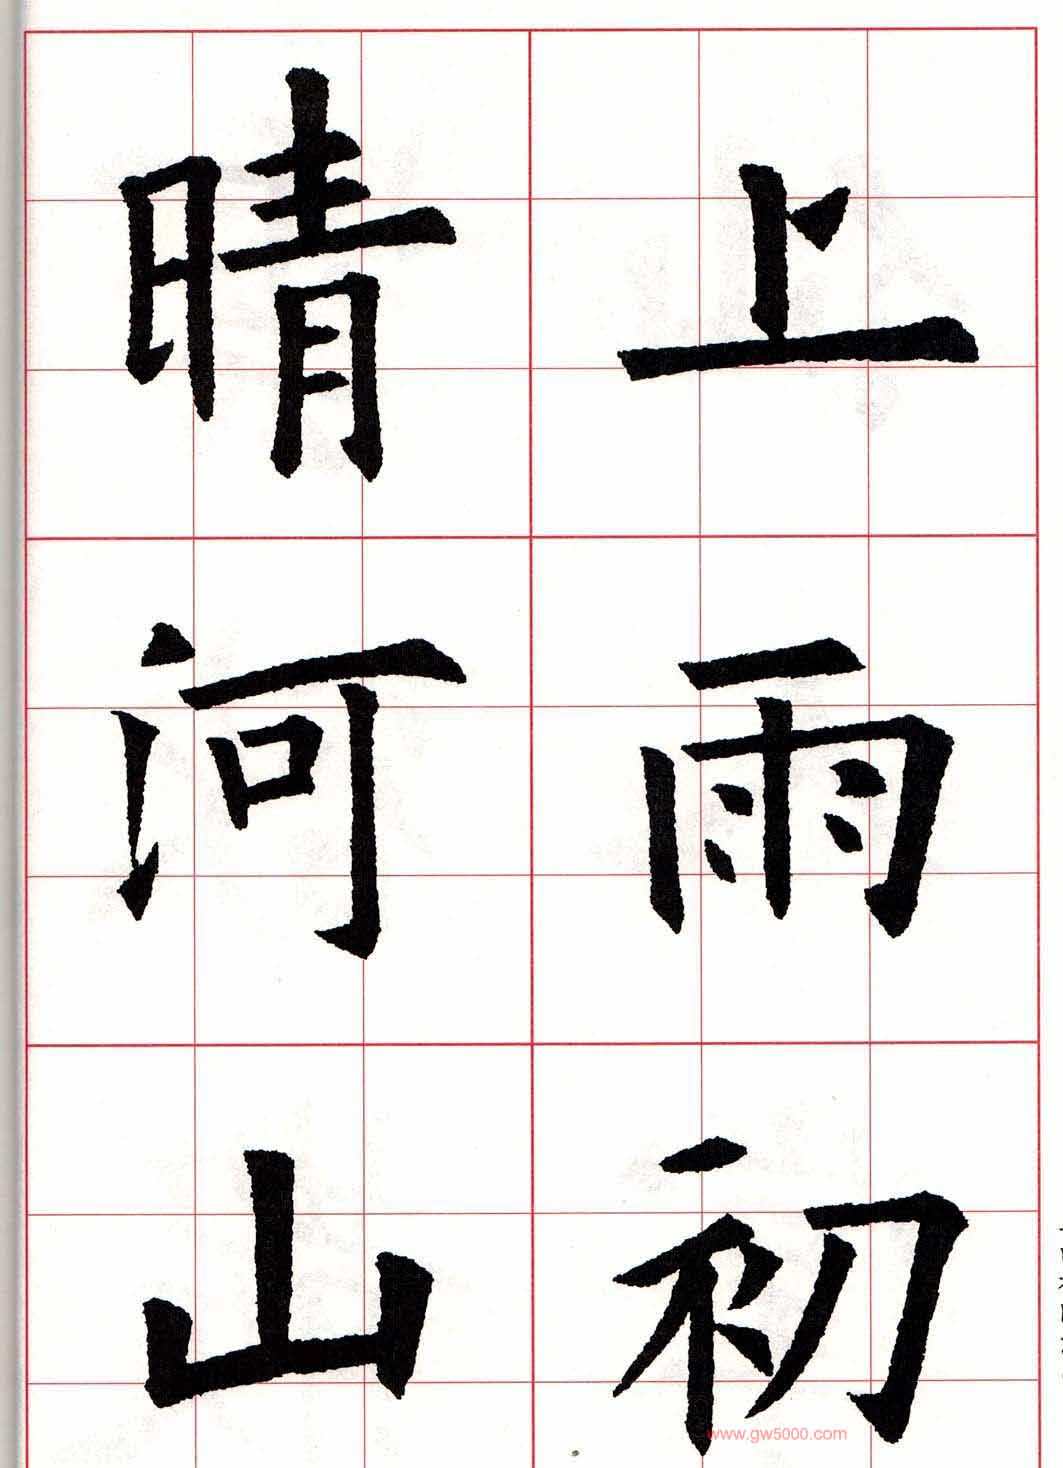 上雨初
晴河山
www.gw5000.com